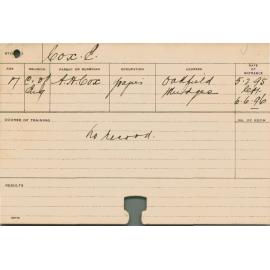 Cox. C.
AGE RELIGION PARENT OR GUARDIAN OCCUPATION ADDRESS DATE OF ENTRANCE
17 C. of A. H. Cox Oakfield 5.2.95
Eng Mudgee left
6.6.96
COURSE OF TRAINING NO. OF ROOM
No record.
RESULTS